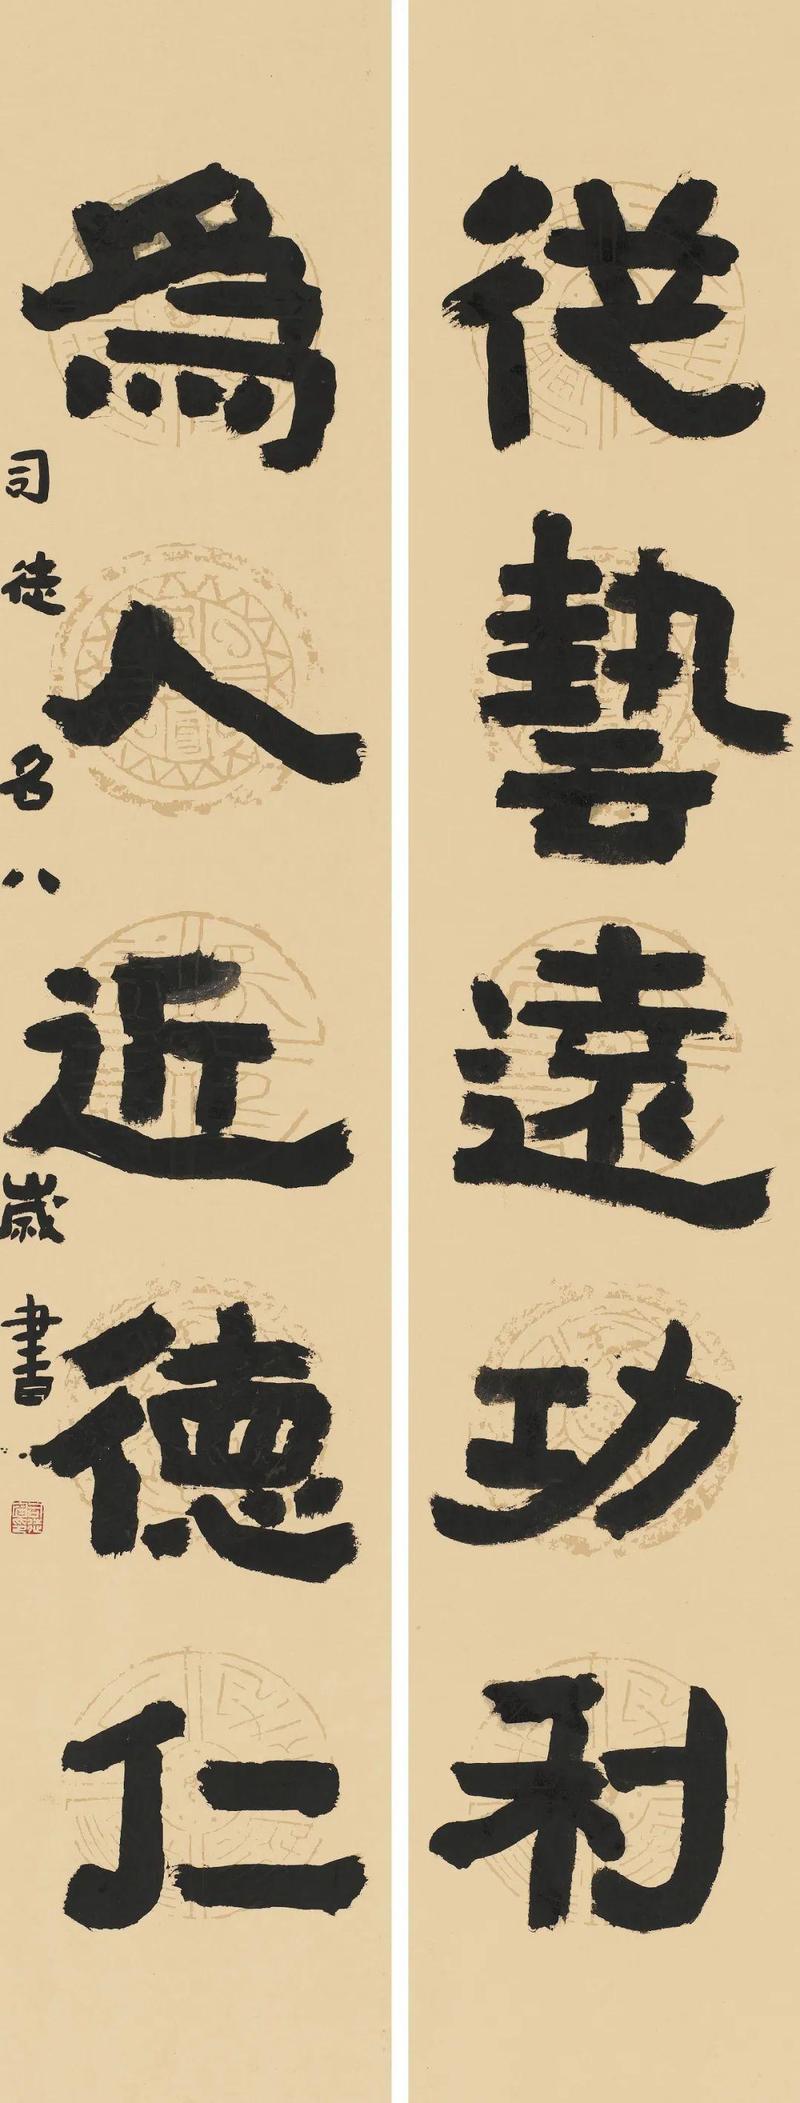 從藝遠功利
為人近德仁
司徒名八歲書